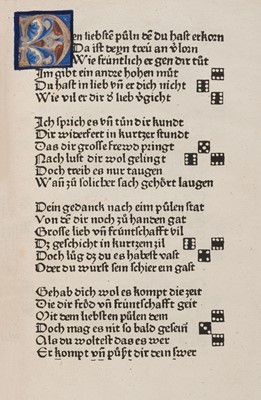 en liebstē půln dē du hast erkorn
Da ist deyn treü an v̓lorn
Wie früntlich er gen dir tůt
Im gibt ein andre hohen můt
Du hast in lieb vn̄ er dich nicht
Wie vil er dir d̓ lieb v̓gicht
Ich sprich es vn̄ tůn dir kundt
Dir widerfert in kurtzer stundt
Das dir grosse frewd pringt
Nach lust dir wol gelingt
Doch treib es nur taugen
Wan̄ zů solicher sach gehört laugen
Dein gedanck nach eim půlen stat
Von dē dir noch zů handen gat
Grosse lieb vn̄ früntschafft vil
Dz geschicht in kurtzem zil
Doch lůg dz du es habest vast
Oder du würst sein schier ein gast
Gehab dich wol es kompt die zeit
Die dir fröd vn̄ früntschafft geit
Mit dem liebsten půlen dein
Doch mag es nit so bald gesein
Als du woltest das es wer
Er kompt vn̄ půßt dir dein swer